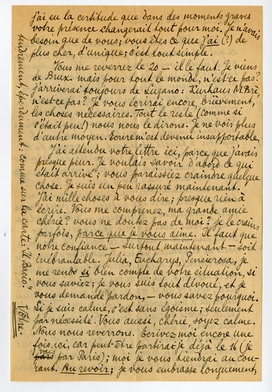 j'ai eu la certitude que dans des moments graves
votre présence changerait tout pour moi. Je n'avais
besoin que de vous; vous êtes ce que j'ai (?) de
plus cher, d'unique; c'est tout simple.
Vous me reverrez le 20 – il le faut. Je viens
de Brux. mais pour tout le monde, n'est-ce pas?
j'arriverai toujours de Lugano: Kurhaus
n'est-ce pas? Je vous écrirai encore, brièvement,
les choses nécessaires. Tout le reste (comme si
c'était peu!) nous nous le dirons. Je ne vois plus
d'autre moyen. Souvenir devenu insupportable.
J'ai attendu votre lettre ici, parce que j'avais
presque peur. Je voulais savoir d'abord ce qui
était arrivé; vous paraissiez craindre quelque
chose. Je suis un peu rassuré maintenant.
J'ai mille choses à vous dire; presque rien à
écrire. Vous me comprenez, ma grande amie
chérie? vous ne doutez pas de moi? Je le crains
parfois, parce que je vous aime. Il faut que
notre confiance – surtout maintenant – soit
inébranlable. Julia, Eucharys, Penserosa, je
me rends si bien compte de votre situation, si
vous saviez; je vous suis tout dévoué, et je
vous demande pardon, – vous savez pourquoi.
Si je suis calme, c'est sans égoïsme; seulement
par nécessité. Vous aussi, chérie, soyez calme.
Nous nous reverrons. Écrivez-moi encore une
fois ici, car peut-être partirai-je déjà le 16 (je
par Paris); moi je vous tiendrai au cou-
rant. Au revoir; je vous embrasse longuement,
tendrement, éperdument: comme sur la
Vôtre